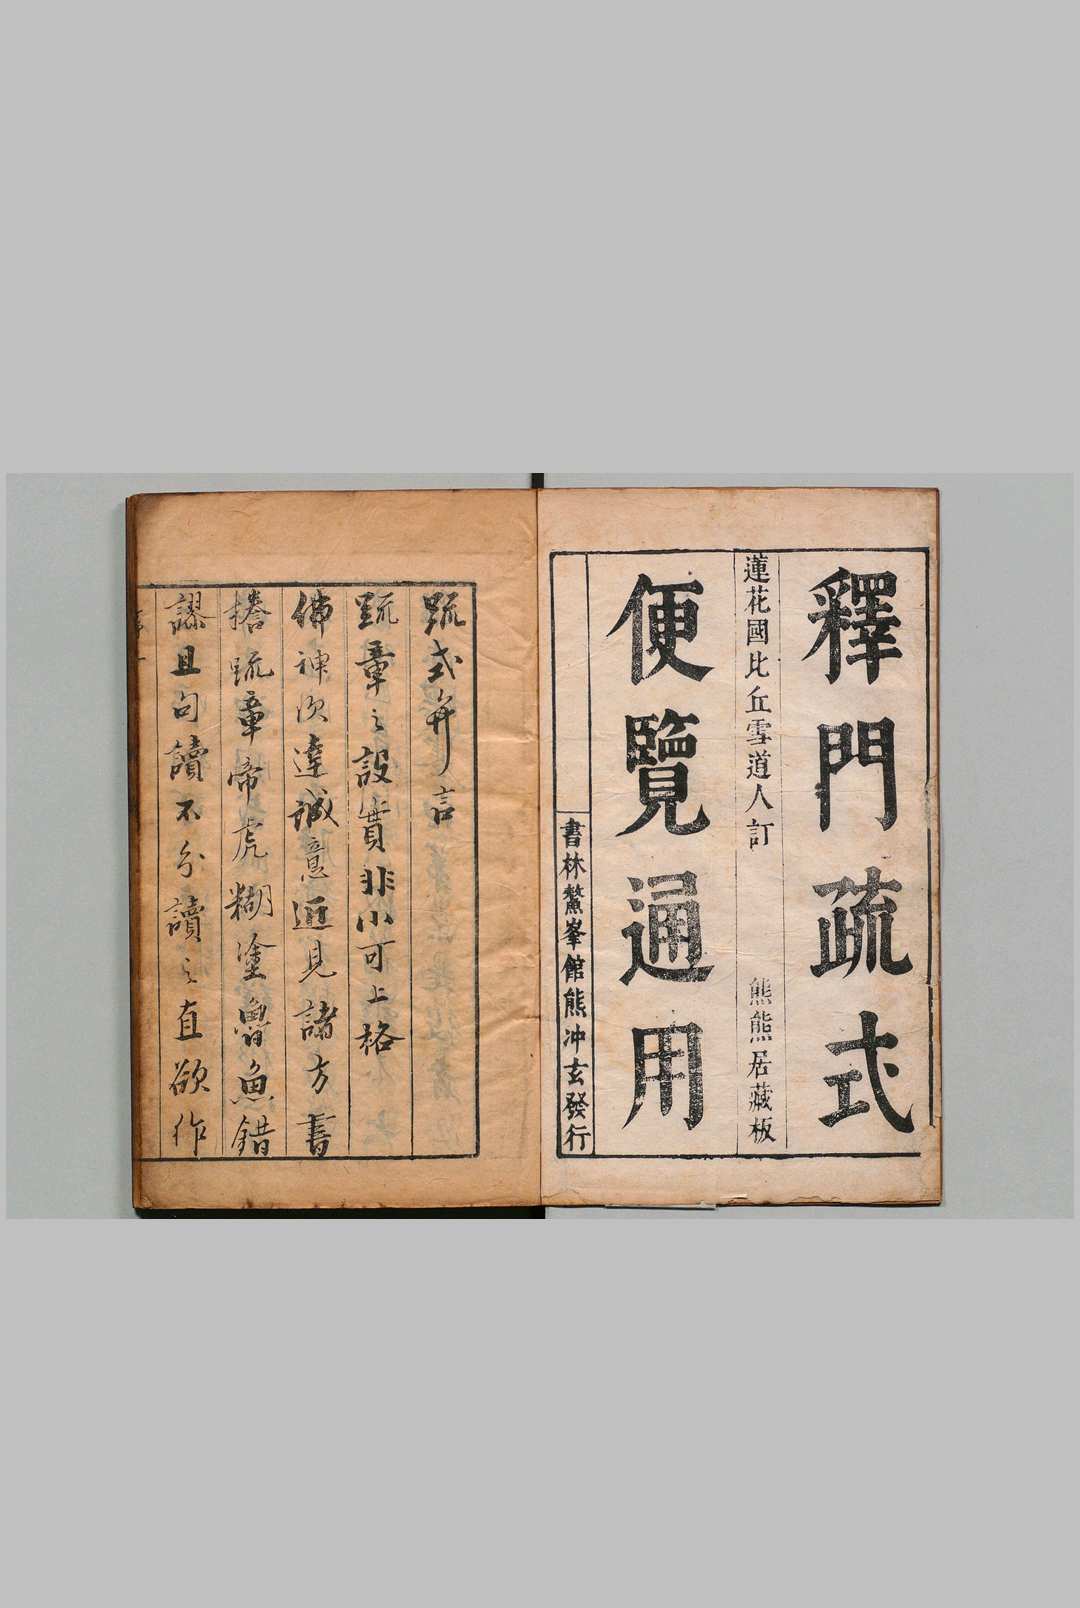 釋門疏式
蓮花國比丘雪道人訂
熊熊居藏板
便覽通用
書林鰲峯館熊冲玄發行
䟽式弁言
䟽章之設實非小可上格
佛神次達誠意近見諸方書
㩫䟽章帝虎糊塗魯魚錯
謬且句讀不分讀之直欲作